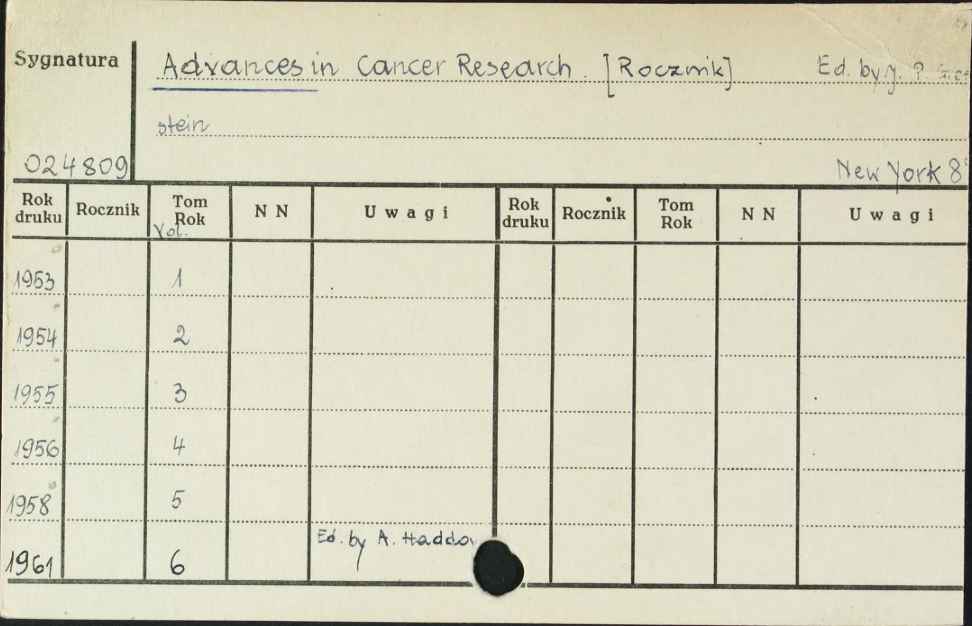 Sygnatura
Advances in Cancer Research. [Rocznik] Ed. by J. P.
stein
024809
New York 8°
Rok druku Rocznik Tom Rok N N Uwagi Rok druku Rocznik Tom Rok N N Uwagi
Vol.
1953 1
1954 2
1955 3
1956 4
1958 5
1961 6 Ed. by A. Haddow